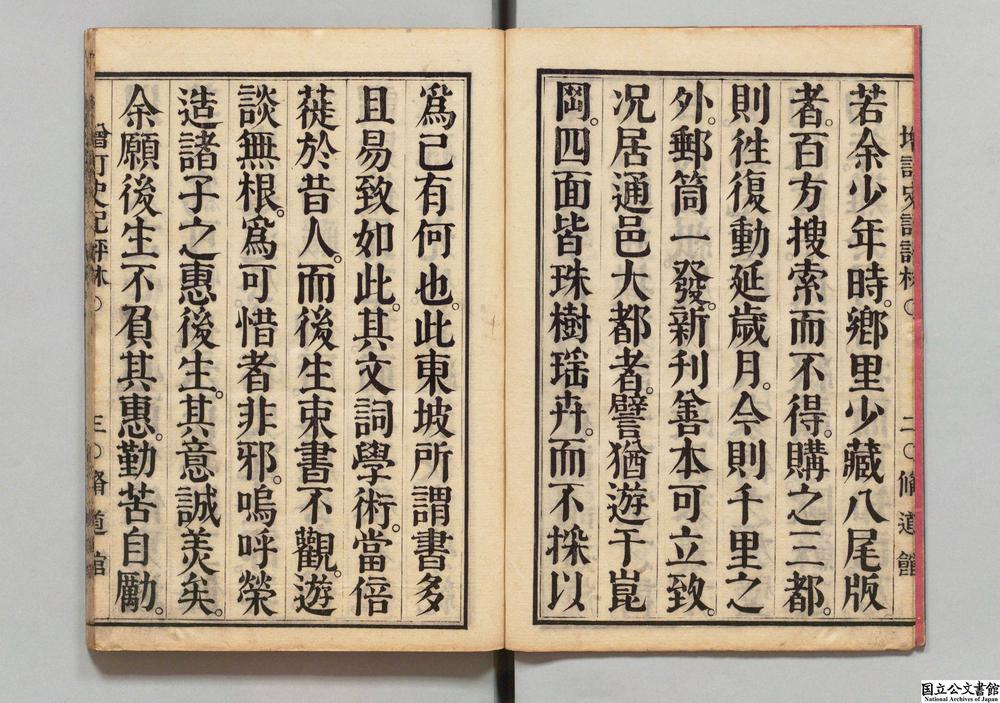 若余少年時。鄉里少藏八尾版
者。百方搜索而不得。購之三都。
則往復動延歲月。今則千里之
外。郵筒一發。新刊善本可立致。
況居通邑大都者。譬猶遊于崑
岡。四面皆珠樹瑶卉。而不採以
爲己有何也。此東坡所謂書多
且易致如此。其文詞學術。當倍
蓰於昔人。而後生束書不觀。遊
談無根。爲可惜者非邪。嗚呼榮
造諸子之惠後生。其意誠美矣。
余願後生不負其惠。勤苦自勵。
增訂史記評林○ 二○脩道館
增訂史記評林○ 三○脩道館
国立公文書館
National Archives of Japan